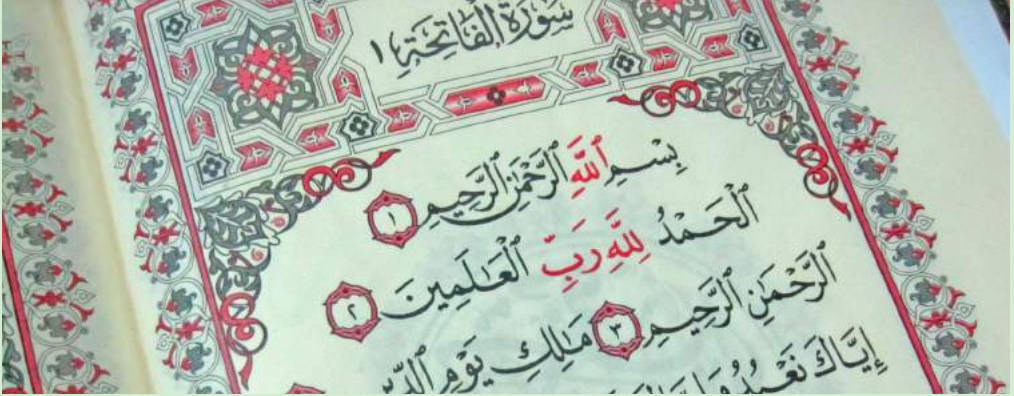 سُورَةُ الْفَاتِحَةِ ١
بِسْمِ ٱللَّهِ ٱلرَّحْمَٰنِ ٱلرَّحِيمِ ١
ٱلْحَمْدُ لِلَّهِ رَبِّ ٱلْعَٰلَمِينَ ٢
ٱلرَّحْمَٰنِ ٱلرَّحِيمِ ٣ مَٰلِكِ يَوْمِ ٱلدِّينِ
إِيَّاكَ نَعْبُدُ